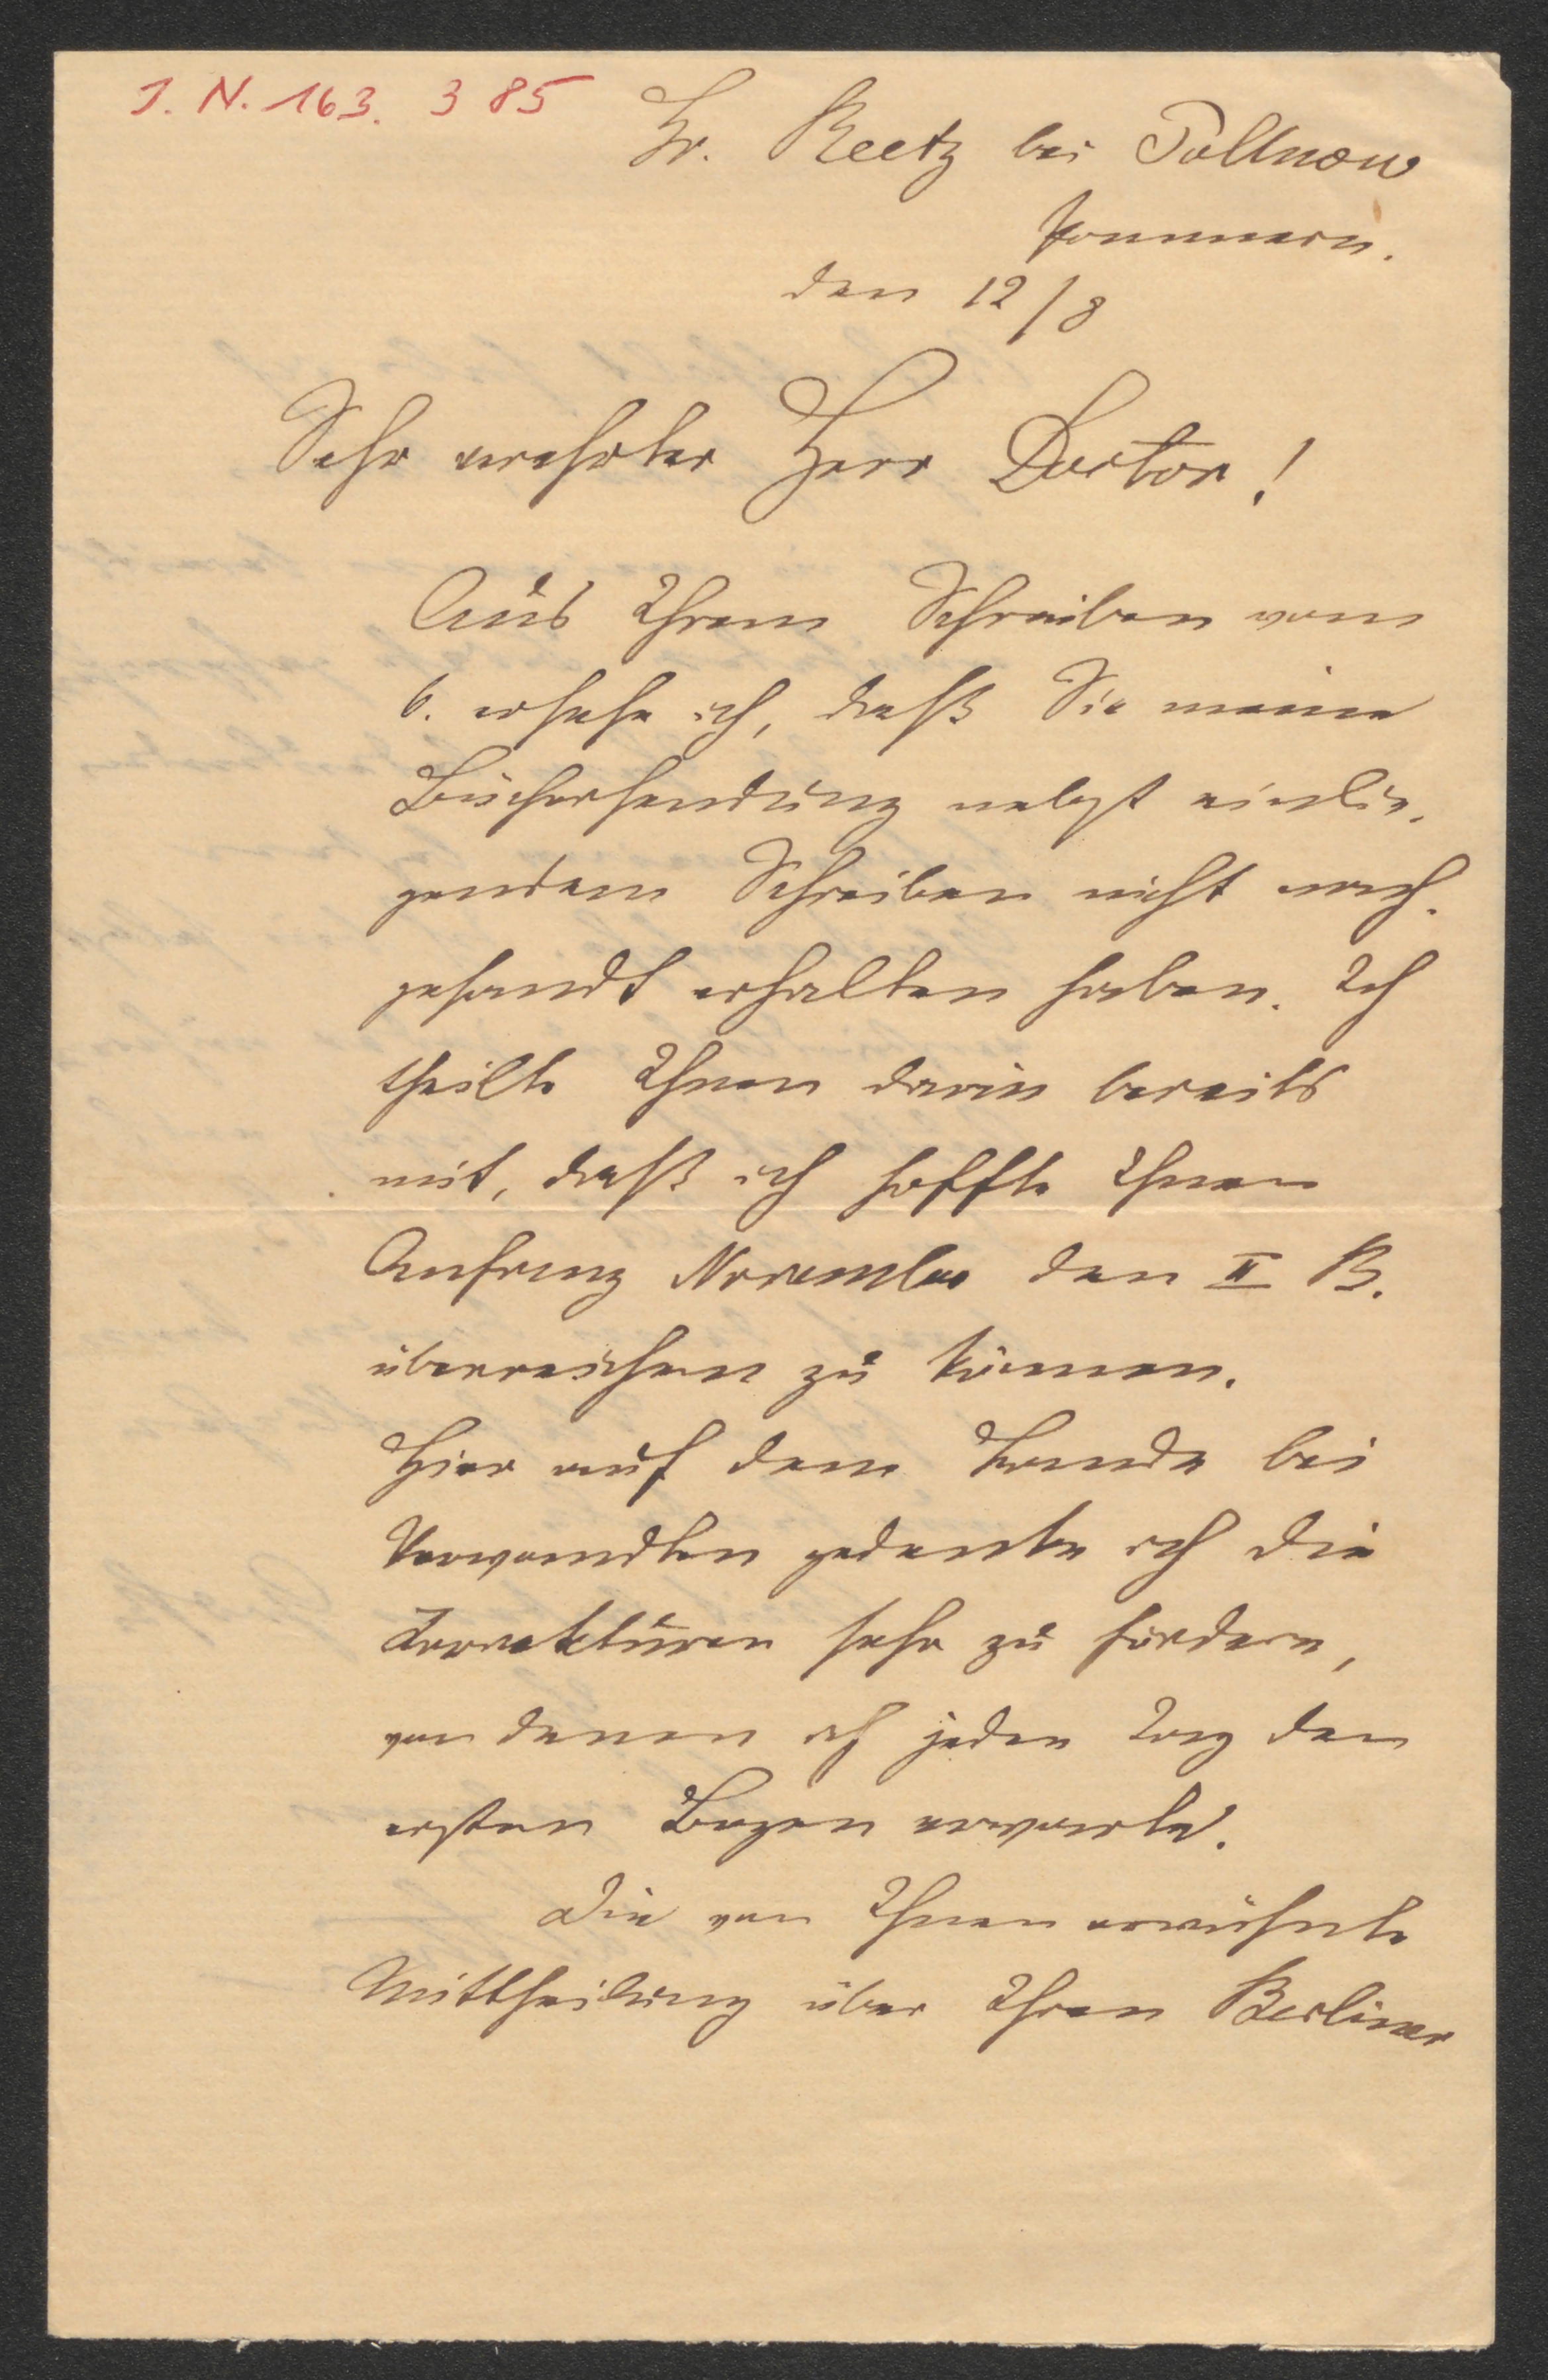 I. N. 163. 385
Hr. Reetz bei Pollnow
Pommern.
den 12/8
Sehr verehrter Herr Doctor!
Aus Ihrem Schreiben vom
6. ersehe ich, daß Sie meine
Büchersendung nebst einlie-
gendem Schreiben nicht nach-
gesandt erhalten haben. Ich
theilte Ihnen darin bereits
mit, daß ich hoffte Ihnen
Anfang November den II B.
überreichen zu können.
Hier auf dem Lande bei
Verwandten gedenke ich die
Korrekturen sehr zu fördern,
von denen ich jeden Tag den
ersten Bogen erwarte.
Die von Ihnen erwähnte
Mittheilung über Ihren Berliner